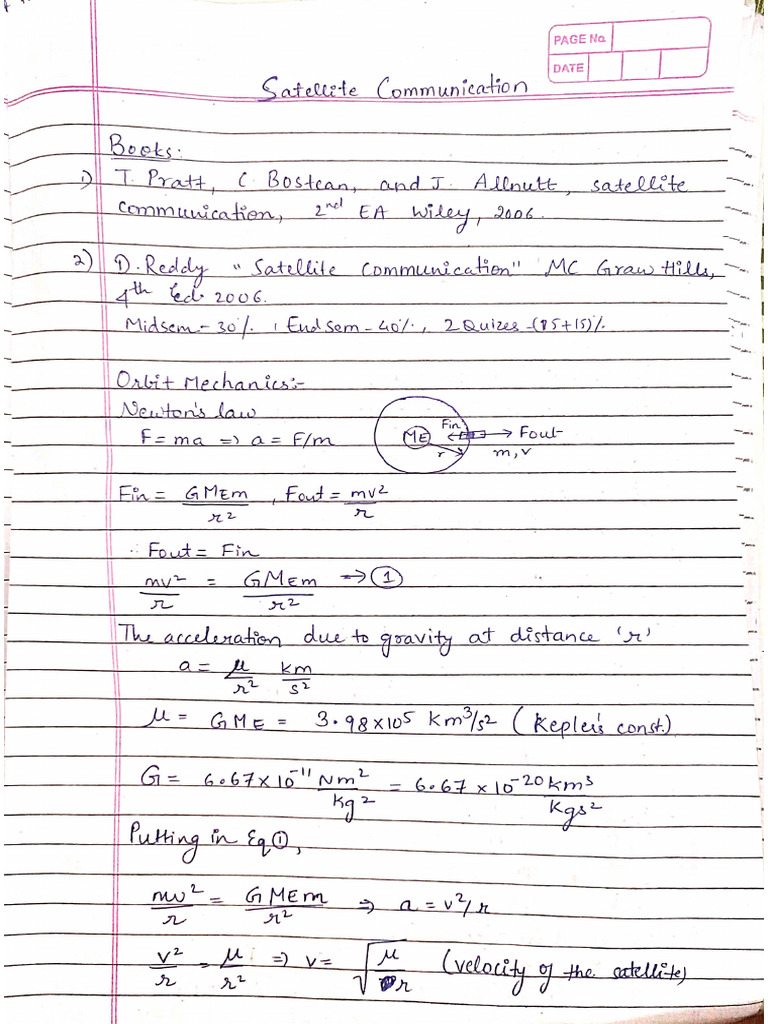 PAGE No.
DATE
Satellite Communication
Books:
1) T. Pratt, C. Bostean, and J. Allnutt, satellite
communication, 2nd EA Wiley, 2006.
2) D. Reddy "Satellite Communication" MC Graw Hills,
4th Ed. 2006.
Midsem - 30%, Endsem - 40%, 2 Quizes - (15+15)%.
Orbit Mechanics:-
Newton's law
F = ma => a = F/m
ME Fin Fout
r m, v
Fin = GMEm/r², Fout = mv²/r
∴ Fout = Fin
mv²/r = GMEm/r² → ①
The acceleration due to gravity at distance 'r'
a = μ/r² km/s²
μ = GME = 3.98×10⁵ km³/s² (Kepler's const.)
G = 6.67×10⁻¹¹ Nm²/kg² = 6.67×10⁻²⁰ km³/kgs²
Putting in Eq ①,
mv²/r = GMEm/r² => a = v²/r
v²/r = μ/r² => v = √(μ/r) (velocity of the satellite)